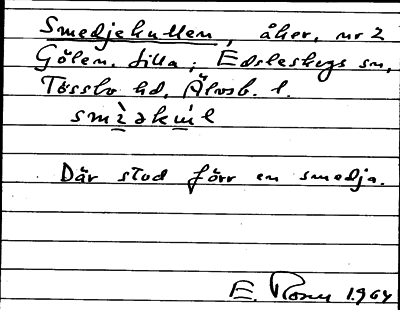 Smedjekullen, åker, nr 2
Gölen. lilla, Edsleskogs sn,
Tössbo hd, Älvsb. l.
smὲəkɯ̀l
Där stod förr en smedja.
E. Rosen 1964